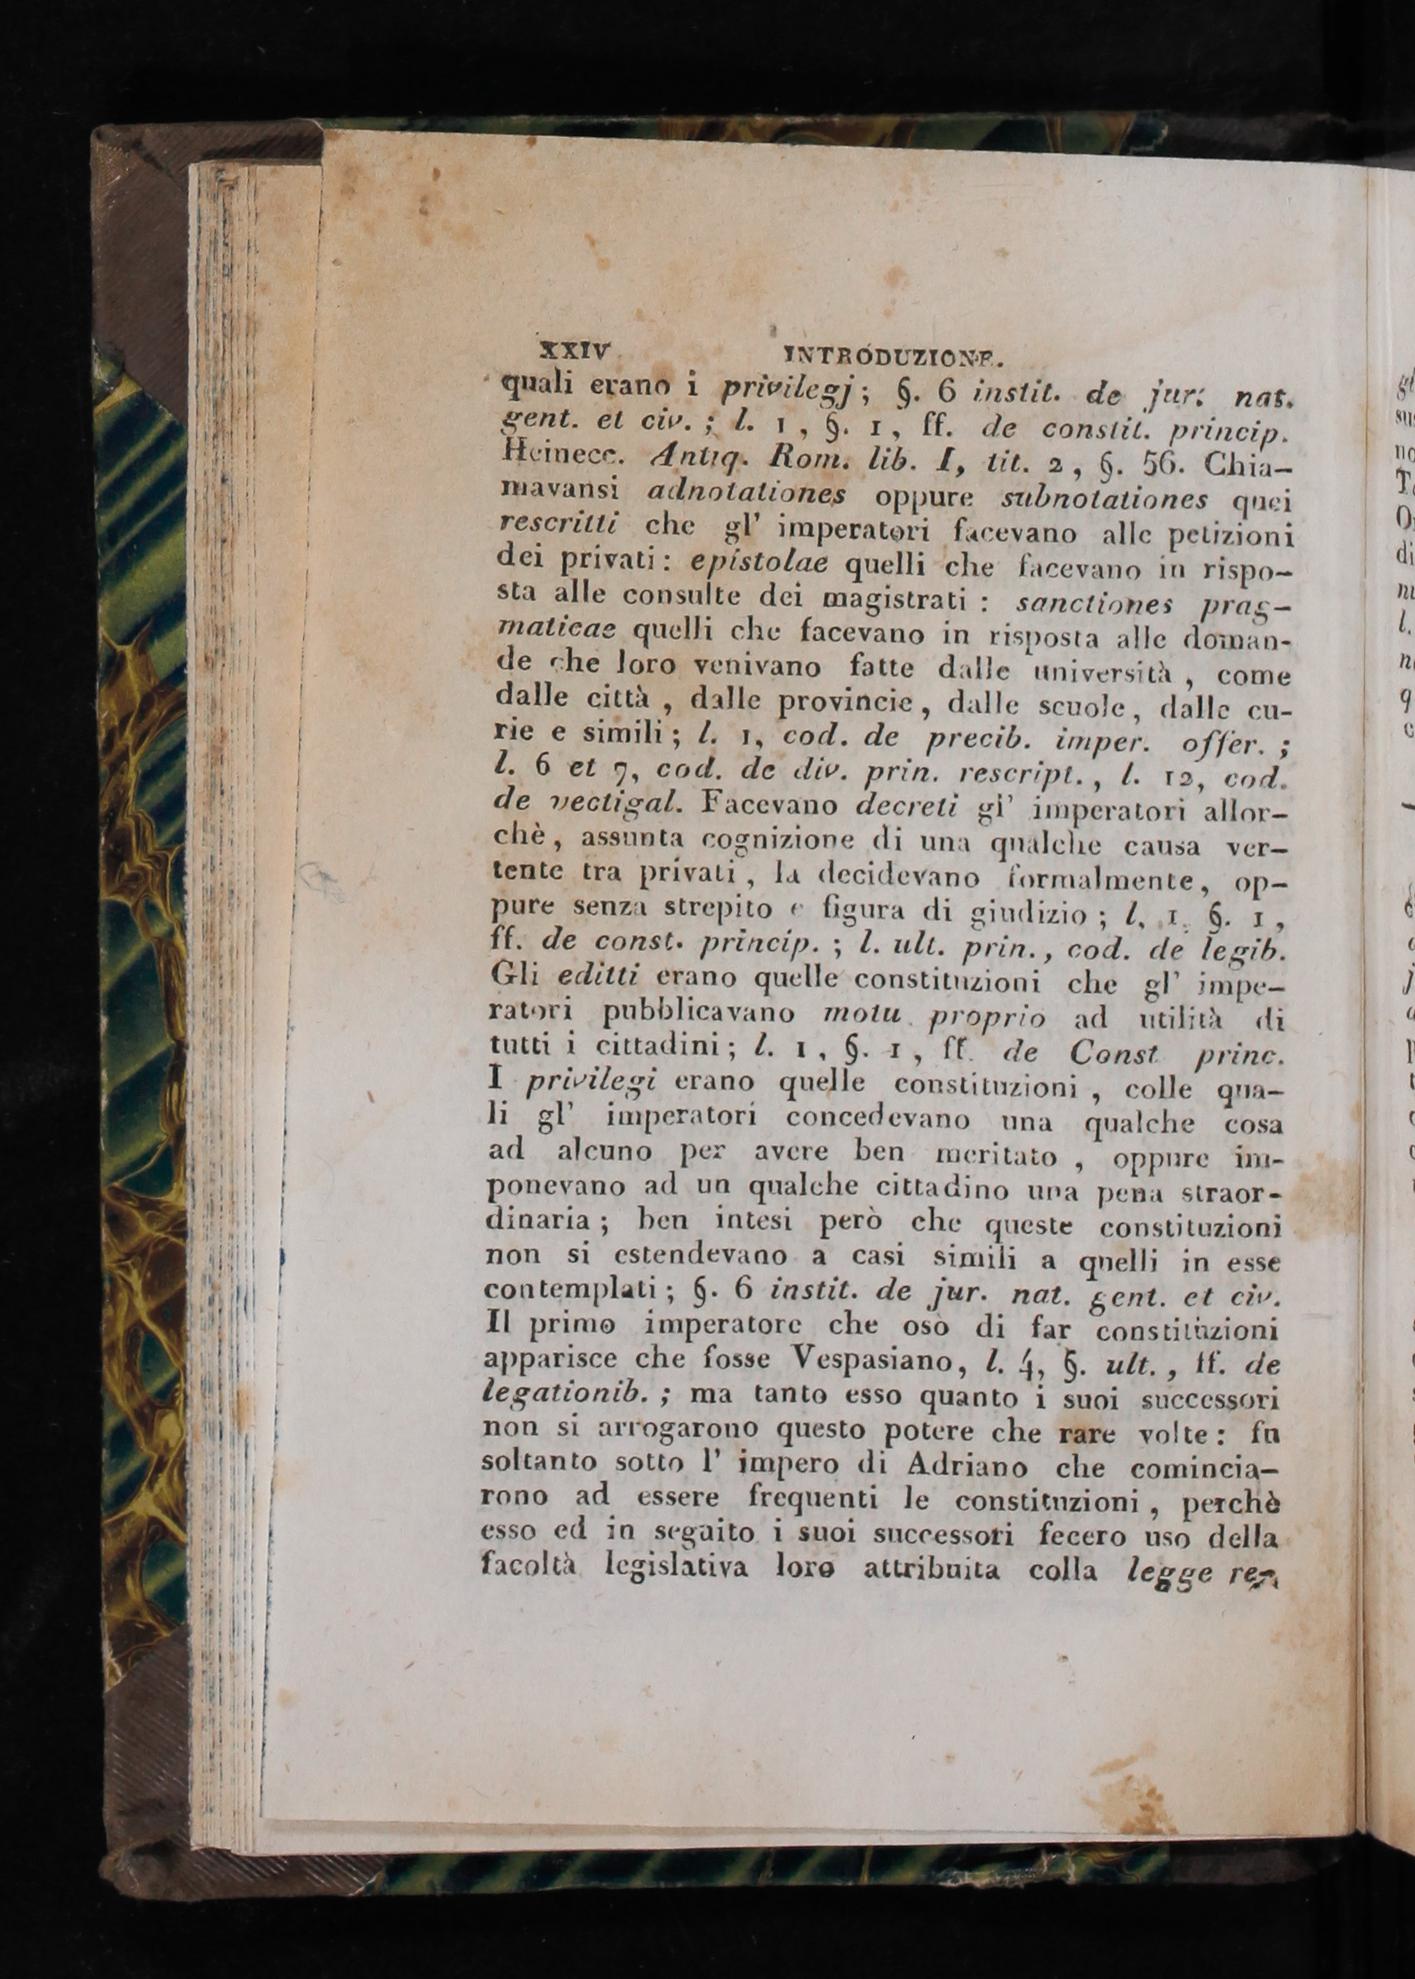 XXIV INTRODUZIONE.
quali erano i privilegj ; §. 6 instit. de jur. nat.
gent. et civ. ; l. 1 , §. 1 , ff. de constit. princip.
Heinecc. Antiq. Rom. lib. I, tit. 2 , §. 56. Chia-
mavansi adnotationes oppure subnotationes quei
rescritti che gl' imperatori facevano alle petizioni
dei privati : epistolae quelli che facevano in rispo-
sta alle consulte dei magistrati : sanctiones prag-
maticae quelli che facevano in risposta alle doman-
de che loro venivano fatte dalle università , come
dalle città , dalle provincie , dalle scuole , dalle cu-
rie e simili ; l. 1, cod. de precib. imper. offer. ;
l. 6 et 7, cod. de div. prin. rescript. , l. 12, cod.
de vectigal. Facevano decreti gl' imperatori allor-
chè , assunta cognizione di una qualche causa ver-
tente tra privati , la decidevano formalmente, op-
pure senza strepito e figura di giudizio ; l. 1. §. 1 ,
ff. de const. princip. ; l. ult. prin., cod. de legib.
Gli editti erano quelle constituzioni che gl' impe-
ratori pubblicavano motu proprio ad utilità di
tutti i cittadini ; l. 1 , §. 1 , ff. de Const princ.
I privilegi erano quelle constituzioni , colle qua-
li gl' imperatori concedevano una qualche cosa
ad alcuno per avere ben meritato , oppure im-
ponevano ad un qualche cittadino una pena straor-
dinaria ; ben intesi però che queste constituzioni
non si estendevano a casi simili a quelli in esse
contemplati ; §. 6 instit. de jur. nat. gent. et civ.
Il primo imperatore che osò di far constitùzioni
apparisce che fosse Vespasiano, l. 4, §. ult. , ff. de
legationib. ; ma tanto esso quanto i suoi successori
non si arrogarono questo potere che rare volte : fu
soltanto sotto l' impero di Adriano che comincia-
rono ad essere frequenti le constituzioni , perchè
esso ed in seguito i suoi successori fecero uso della
facoltà legislativa loro attribuita colla legge re-